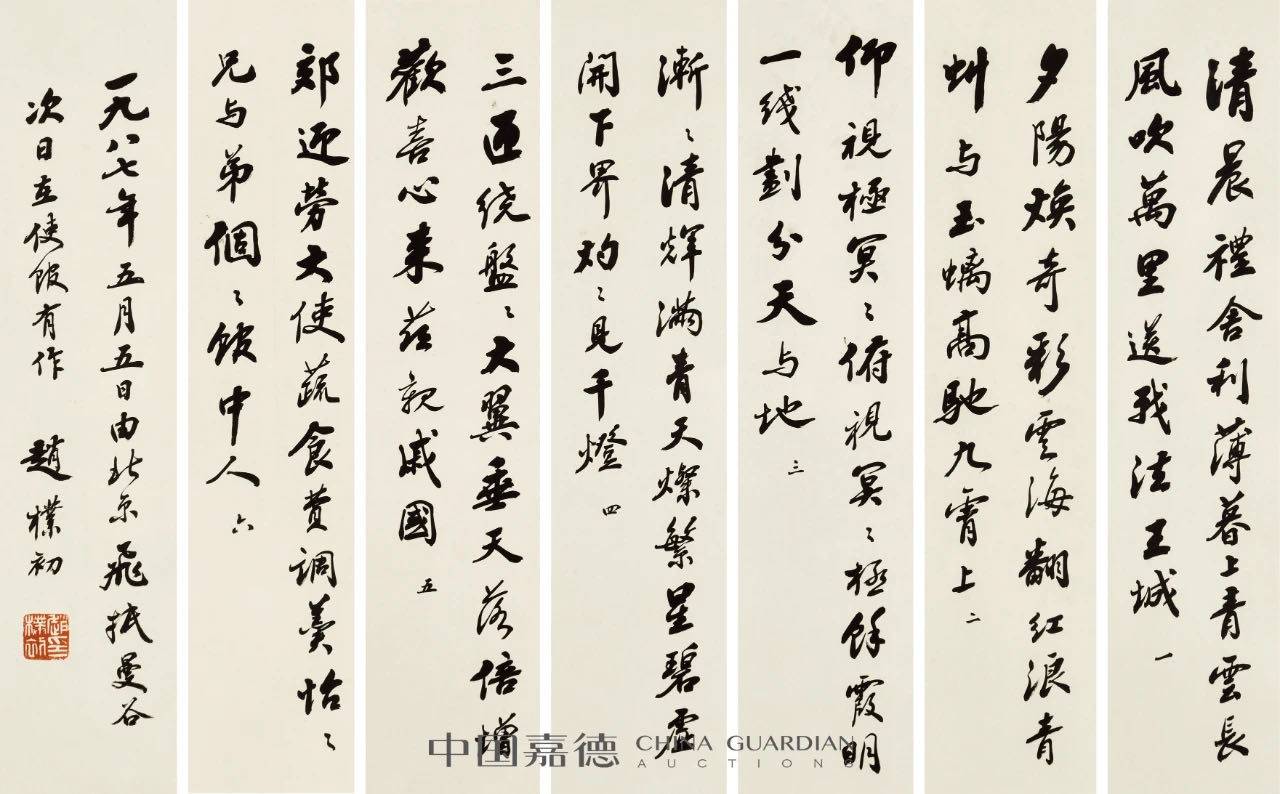 清晨禮舍利薄暮上青雲長
風吹萬里送我法王城 一
夕陽煥奇彩雲海翻紅浪青
虯与玉螭高馳九霄上 二
仰視極冥〻俯視冥〻極餘霞明
一线劃分天与地 三
漸〻清輝滿青天燦繁星碧虛
開下界灼〻見千燈 四
三匝绕盤〻大翼垂天落倍增
歡喜心来茲親戚國 五
郊迎劳大使蔬食費調羹怡〻
兄与弟個〻饺中人 六
一九八七年五月五日由北京飛抵曼谷
次日在使館有作 趙樸初
趙樸初
中国嘉德 CHINA GUARDIAN
AUCTIONS